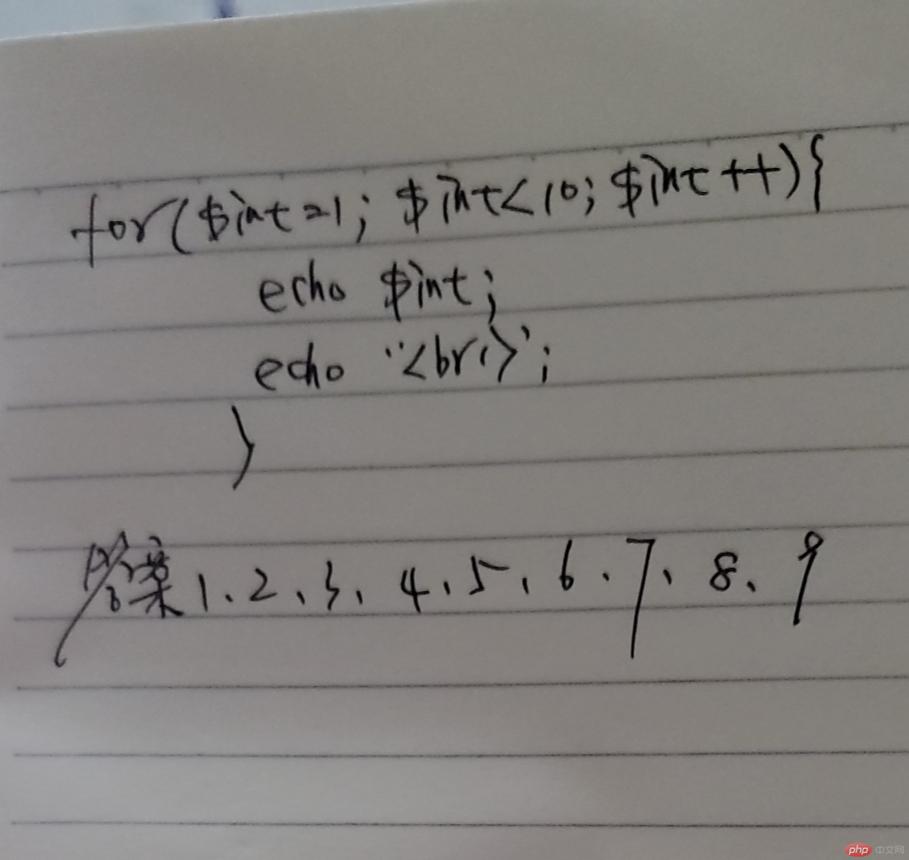 for($int=1; $int<10; $int++){
echo $int;
echo '<br/>';
}
答案1、2、3、4、5、6、7、8、9
php 中文网